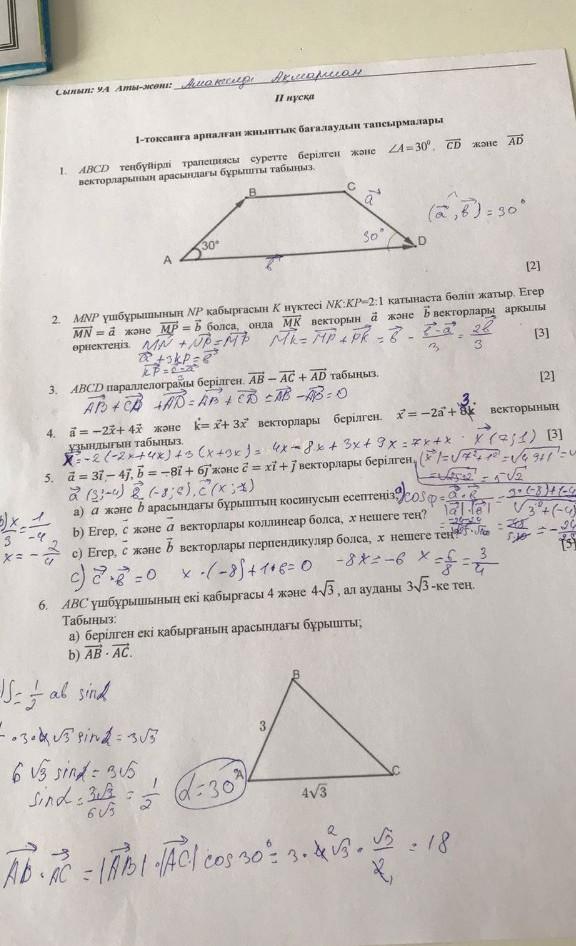 Сынып: 9А Аты-жөні: Аманкелді Ақмаржан
II нұсқа
1-тоқсанға арналған жиынтық бағалаудың тапсырмалары
1. ABCD теңбүйірлі трапециясы суретте берілген және ∠A=30°. CD⃗ және AD⃗
векторларының арасындағы бұрышты табыңыз.
B
C
a⃗
(a⃗ ^ b⃗) = 30°
30°
30°
A
D
b⃗
[2]
2. MNP үшбұрышының NP қабырғасын K нүктесі NK:KP=2:1 қатынаста бөліп жатыр. Егер
MN⃗ = a⃗ және MP⃗ = b⃗ болса, онда MK⃗ векторын a⃗ және b⃗ векторлары арқылы
өрнектеңіз. MN + NP = MP MK = MP + PK = b⃗ -
[3]
a⃗ + 3KP = b⃗
3. ABCD параллелограмы берілген. AB⃗ − AC⃗ + AD⃗ табыңыз.
[2]
AB + CD + AD = AB + CD = AB - AB = 0
4. a⃗ = −2x⃗ + 4x⃗ және k⃗ = x⃗ + 3x⃗ векторлары берілген. x⃗ = −2a⃗ + 3k⃗ векторының
ұзындығын табыңыз.
[3]
x⃗ = -2(-2x+4x)+3(x+3x) = 4x - 8x + 3x + 9x = 7x + x · x⃗(7;1)
5. a⃗ = 3i⃗ − 4j⃗, b⃗ = −8i⃗ + 6j⃗ және c⃗ = xi⃗ + j⃗ векторлары берілген.
= 5√2
a⃗(3;-4) b⃗(-8;6), c⃗(x;1)
a) a және b арасындағы бұрыштың косинусын есептеңіз;
cosφ = a⃗·b⃗
|a⃗|·|b⃗|
b) Егер, c⃗ және a⃗ векторлары коллинеар болса, x нешеге тең?
b) x/3 = 1/-4
x = -
c) Егер, c⃗ және b⃗ векторлары перпендикуляр болса, x нешеге тең?
[5]
c) c⃗ · b⃗ = 0 x · (-8) + 1·6 = 0 -8x = -6 x = 6/8 = 3/4
6. ABC үшбұрышының екі қабырғасы 4 және 4√3, ал ауданы 3√3-ке тең.
Табыңыз:
a) берілген екі қабырғаның арасындағы бұрышты;
b) AB⃗ · AC⃗.
B
3
A
C
4√3
S = 1/2 ab sinα
· 3 · 4√3 sinα = 3√3
6√3 sinα = 3√3
sinα = 3√3/6√3 = 1/2
α = 30°
AB⃗ · AC⃗ = |AB⃗| · |AC⃗| cos30° = 3 · 4√3 · √3/2 = 18